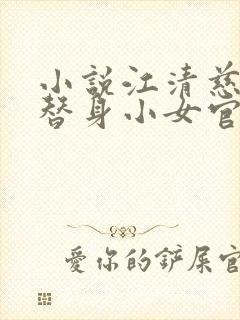 小說江清慈
替身小女官
愛你的鏟屎官